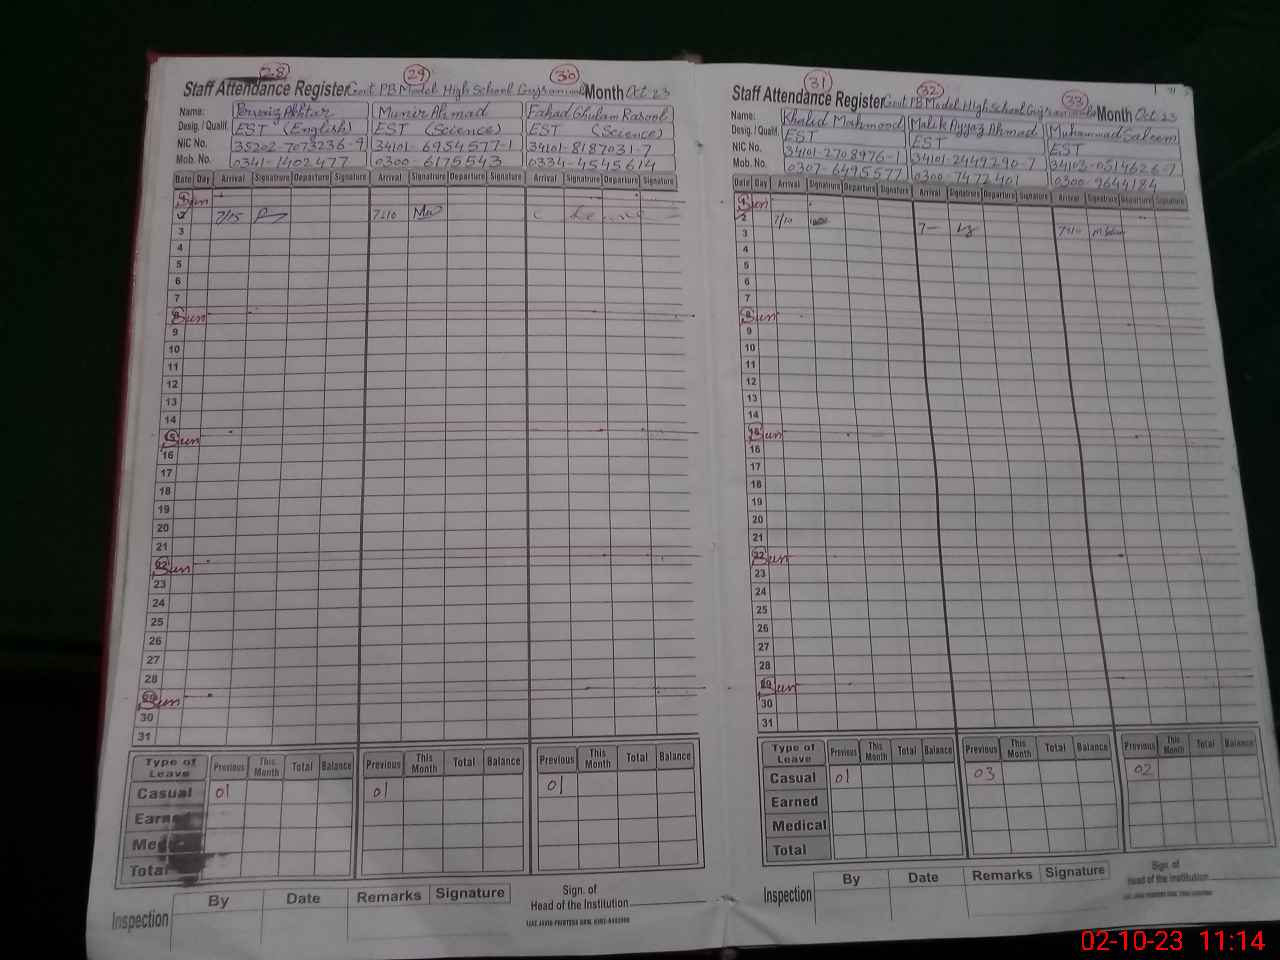 28 29 30
Staff Attendance Register Govt PB Model High School Gujranwala Month Oct 23
Name: Pervaiz Akhtar Munir Ahmad Fahad Ghulam Rasool
Desig. / Qualif. EST (English) EST (Science) EST (Science)
NIC No. 35202-7073236-9 34101-6954577-1 34101-8187031-7
Mob. No. 0341-1402477 0300-6175543 0334-4545614
Date Day Arrival Signature Departure Signature Arrival Signature Departure Signature Arrival Signature Departure Signature
1 Sun
2 7/15 7210
3
4
5
6
7
8 Sun
9
10
11
12
13
14
15 Sun
16
17
18
19
20
21
22 Sun
23
24
25
26
27
28
29 Sun
30
31
Type of Leave Previous This Month Total Balance Previous This Month Total Balance Previous This Month Total Balance
Casual 01 01 01
Earned
Medical
Total
Inspection By Date Remarks Signature
Sign. of
Head of the Institution
31 32 33
Staff Attendance Register Govt PB Model High School Gujranwala Month Oct 23
Name: Khalid Mahmood Malik Ayyaz Ahmad Muhammad Saleem
Desig. / Qualif. EST EST EST
NIC No. 34101-2708976-1 34101-2449290-7 34103-0514626-7
Mob. No. 0307-6495577 0300-7472401 0300-9644184
Date Day Arrival Signature Departure Signature Arrival Signature Departure Signature Arrival Signature Departure Signature
1 Sun
2 7/10
3
4
5
6
7
8 Sun
9
10
11
12
13
14
15 Sun
16
17
18
19
20
21
22 Sun
23
24
25
26
27
28
29 Sun
30
31
Type of Leave Previous This Month Total Balance Previous This Month Total Balance Previous This Month Total Balance
Casual 01 03 02
Earned
Medical
Total
Inspection By Date Remarks Signature
Sign. of
Head of the Institution
02-10-23 11:14